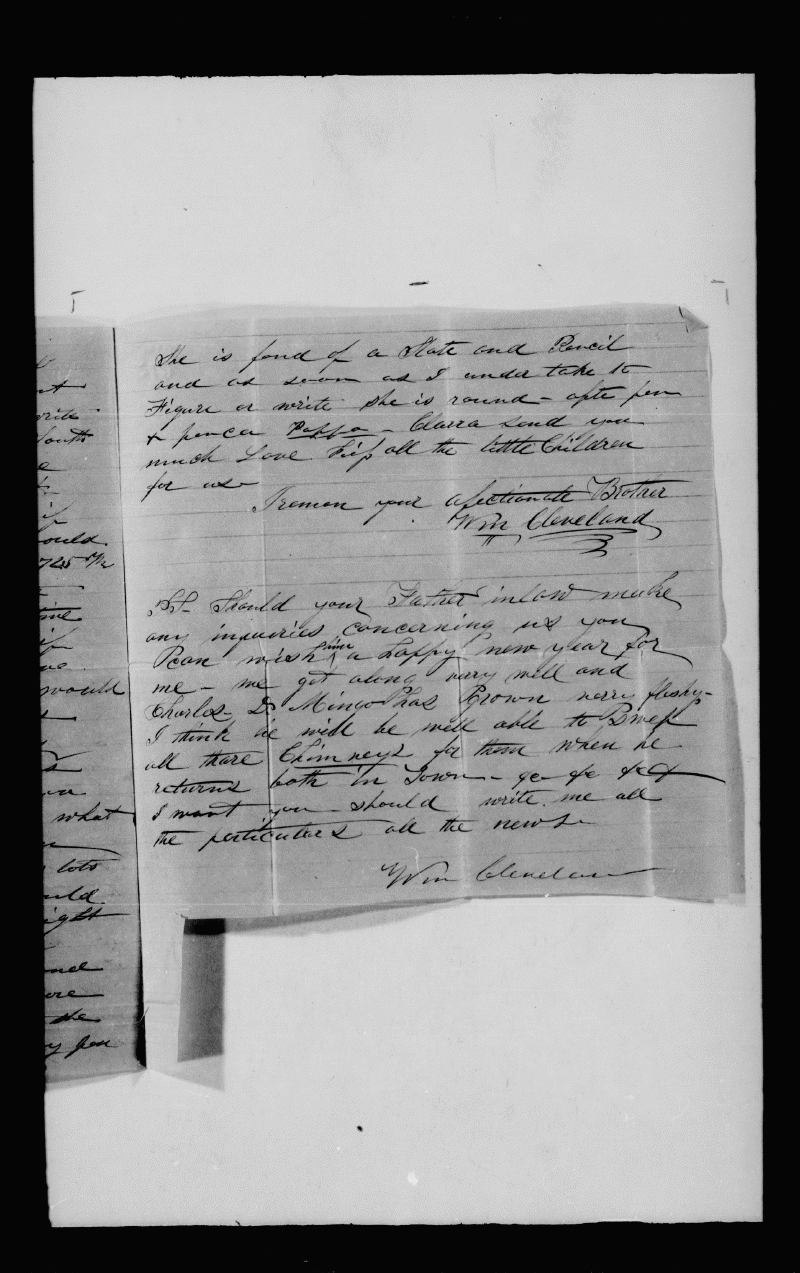 She is fond of a Slate and Pencil
and as soon as I under take to
Figure or write she is round - afte pen
& pencer Pappa - Clarra send you
much Love Kiss all the little Children
for us
Iremon your afectionate Brother
Wm Cleveland
P.S. Should your Father inlaw make
any inquiries concerning us you
can wish him a happy new year for
me - we get along verry well and
Charles D. Mingo has Grown verry fleshy-
I think he will be well able to Sweep
all thare Chimneys for them when he
returns both in Town - &c &c &c
I want you should write me all
the perticulars all the news
Wm Cleveland
ould
725
would
what
lots
uld
ight
ore
the
pen